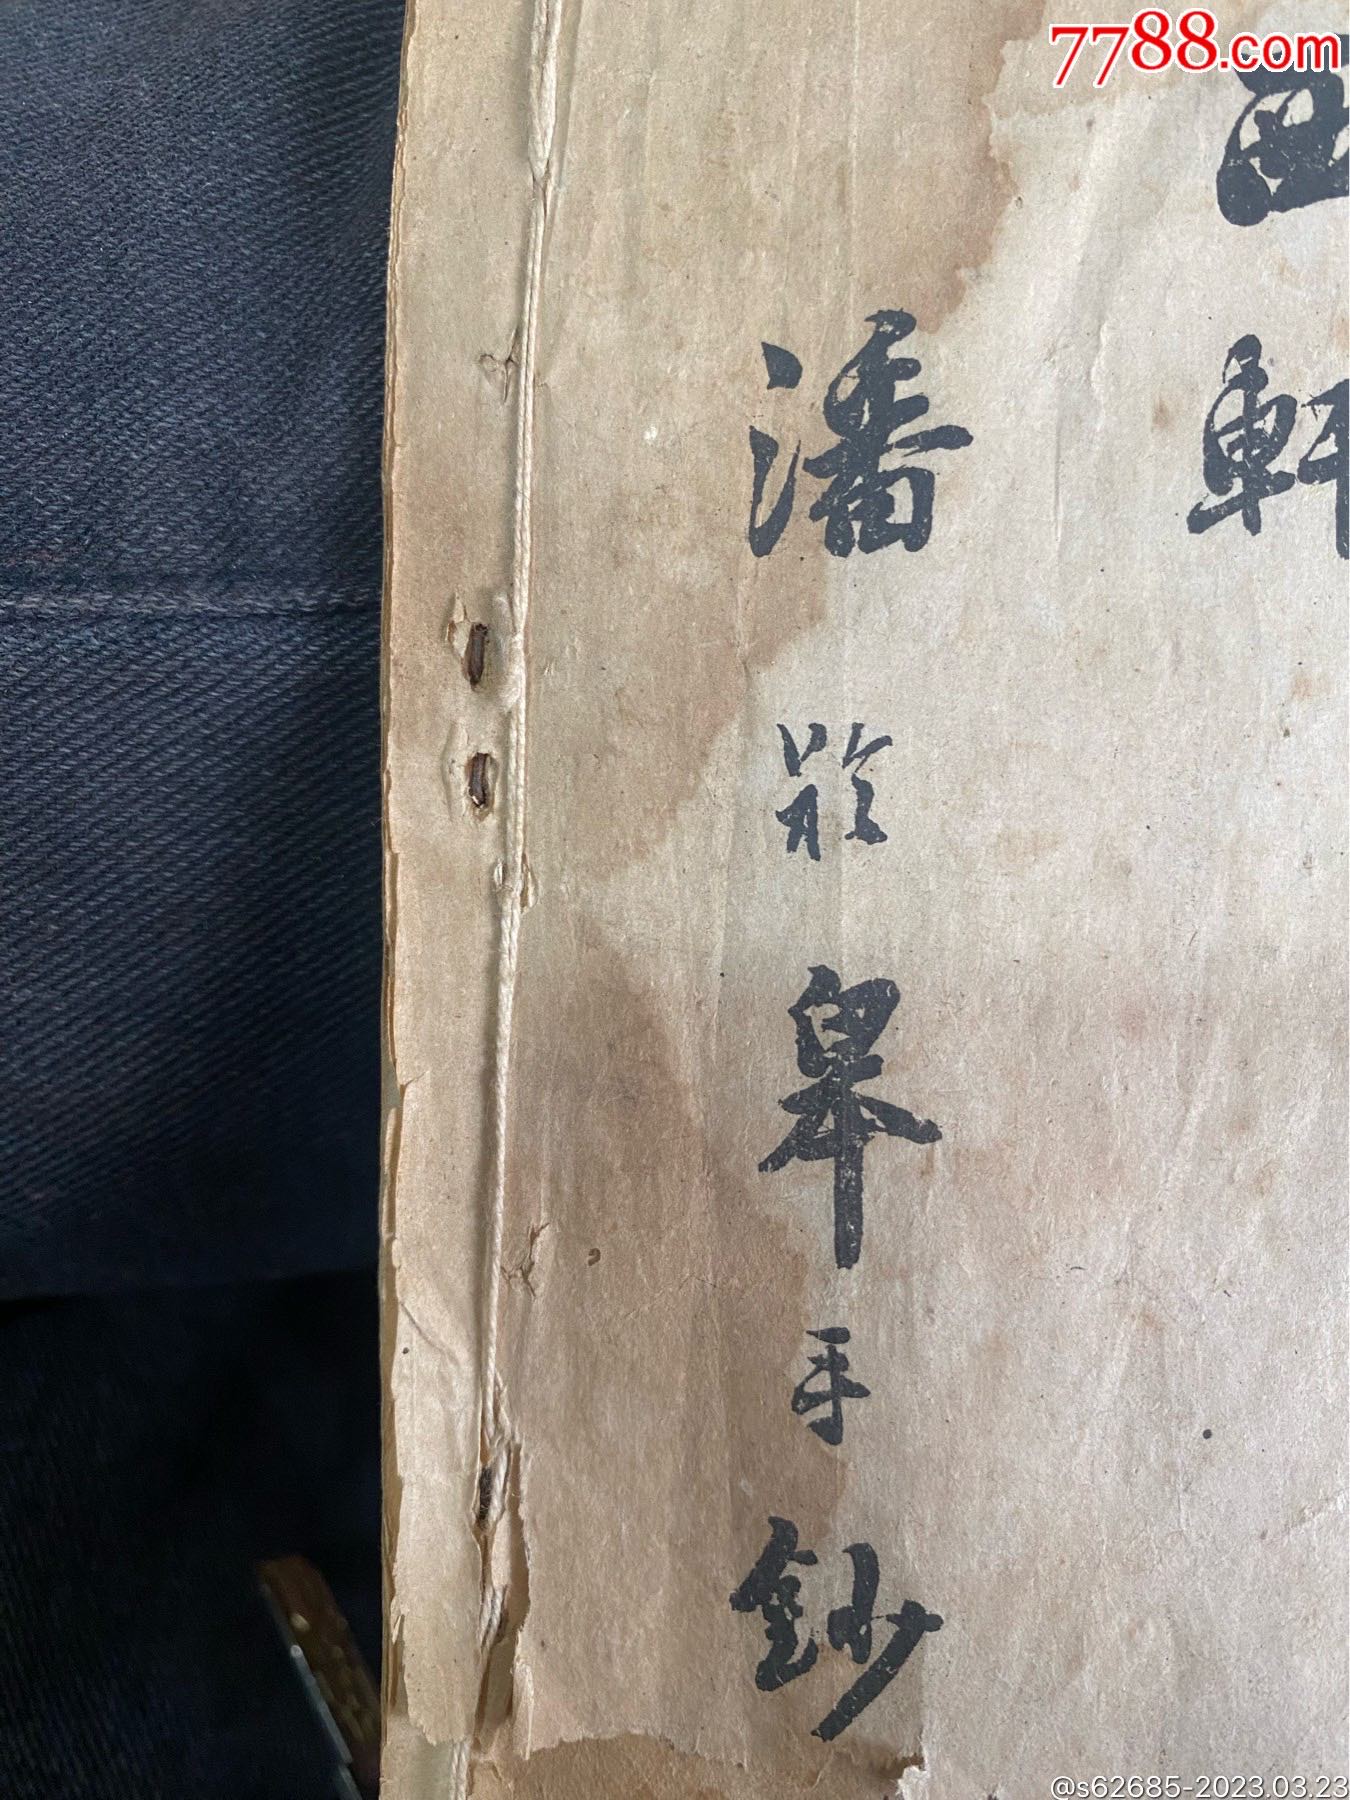 7788.com
西軒
潘於皋手鈔
@s62685-2023.03.23